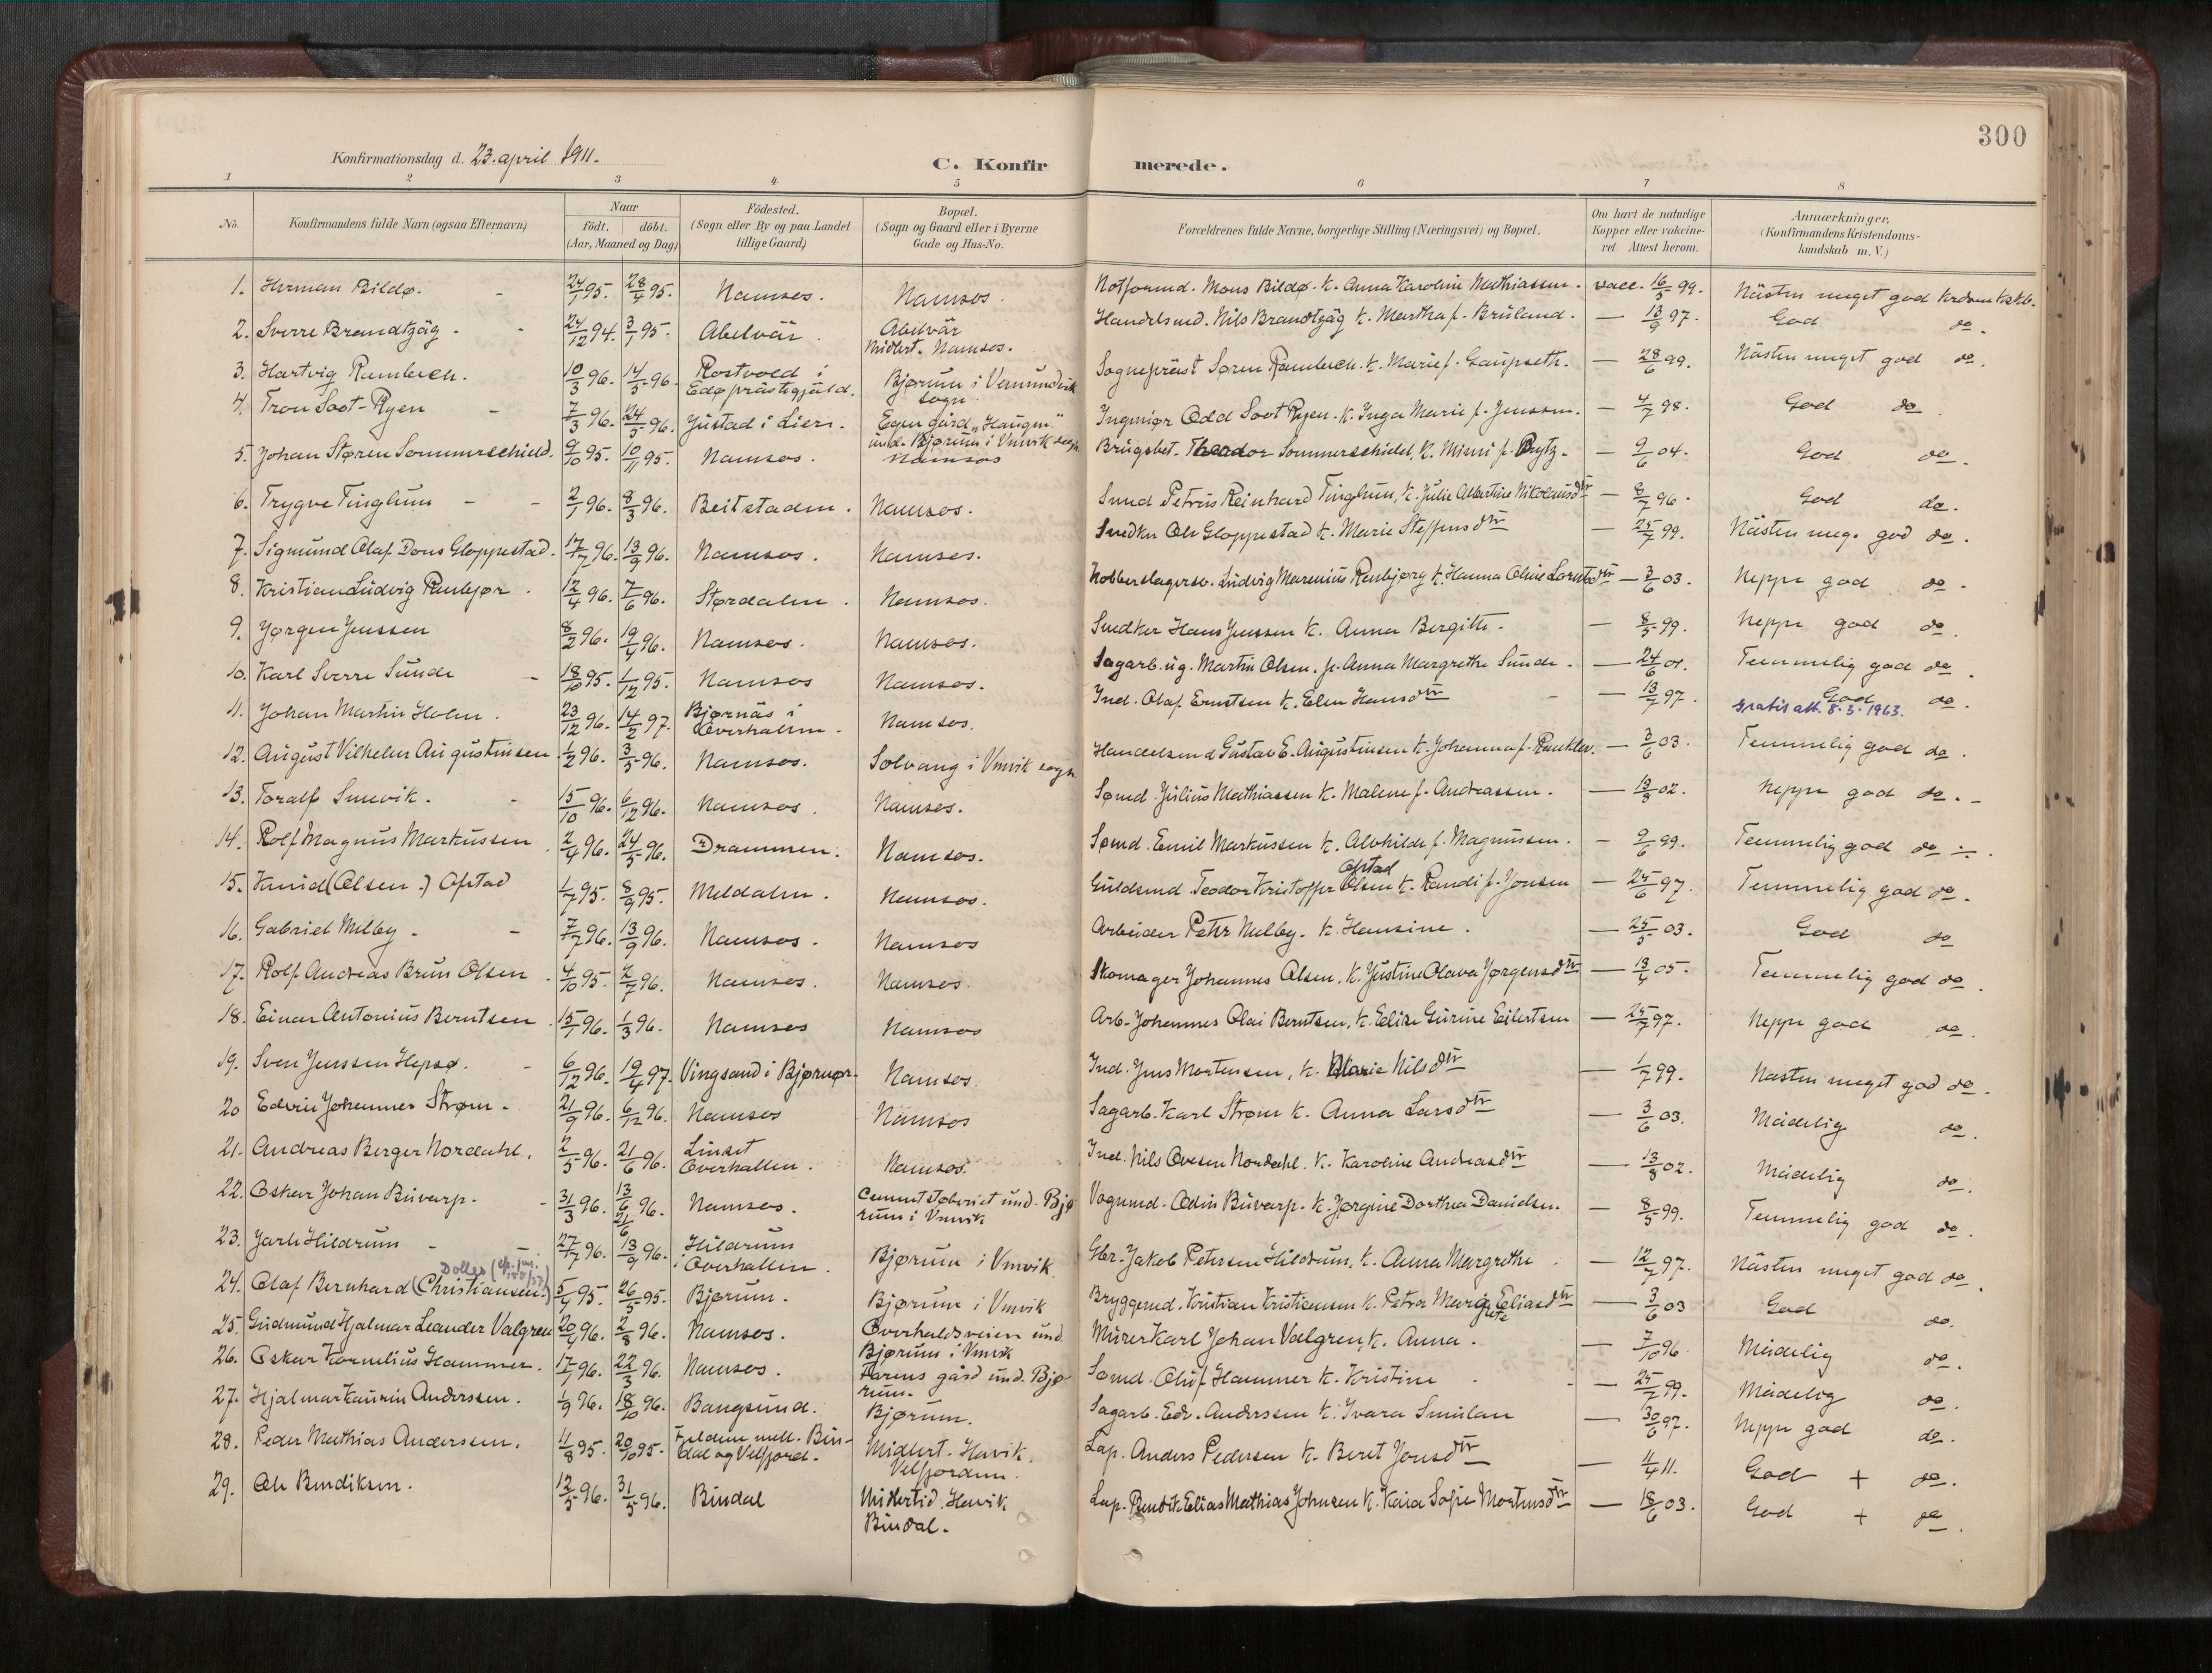 300
Konfirmationsdag d. 23. april 1911.
C. Konfirmerede.
1 2 3 4 5 6 7 8
No. Konfirmandens fulde Navn (ogsaa Efternavn) Naar født. døbt. (Aar, Maaned og Dag) Fødested. (Sogn eller By og paa Landet tillige Gaard) Bopæl. (Sogn og Gaard eller i Byerne Gade og Hus-No. Forældrenes fulde Navne, borgerlige Stilling (Næringsvei) og Bopæl. Om havt de naturlige Kopper eller vakcineret. Attest herom. Anmærkninger. (Konfirmandens Kristendomskundskab m. V.)
1. Herman Bildø. 24/1 95. 28/4 95. Namsos. Namsos. Notformd. Mons Bildø. k. Anna Karoline Mathiassen. vacc. 16/5 99. Nästen meget god
2. Sverre Brandtzäg 24/12 94. 3/1 95. Abelvär. Abelvär midlert. Namsos. Handelsmd. Nils Brandtzäg k. Martha f. Brüland. — 13/9 97. God do.
3. Hartvig Rambech. 10/3 96. 14/5 96. Rostvold i Edø prästegjäld. Bjørum i Vemundvik sogn Sognepräst Søren Rambech. k. Marie f. Gaupseth. — 28/6 99. Nästen meget god do.
4. Tron Soot-Ryen 7/3 96. 24/5 96. Justad i Lier. Egen gård "Haugen" und. Bjørum i Vmvik sogn Ingeniør Odd Soot Ryen. k. Inga Marie f. Jenssen. — 4/7 98. God do
5. Johan Støren Sommerschield. 9/10 95. 10/11 95. Namsos. Namsos Brugsbet. Theodor Sommerschield, k. Mimi f. Brytz. — 9/6 04. God do.
6. Trygve Tinghum 2/1 96. 8/3 96. Beitstaden. Namsos. Smed Petrus Reinhard Tinghum, k. Julie Albertine Nikolausdtr — 8/7 96. God do.
7. Sigmund Olaf Dons Gloppestad. 17/7 96. 13/9 96. Namsos. Namsos. Snedker Ole Gloppestad k. Marie Steffensdtr — 25/7 99. Nästen meg. god do.
8. Kristian Ludvig Renbjør. 12/4 96. 7/6 96. Størdalen. Namsos. Kobberslagersv. Ludvig Marenius Renbjørg k. Hanna Oline Lorntsdtr — 3/6 03. Neppe god do.
9. Jørgen Jenssen 8/2 96. 19/4 96. Namsos. Namsos. Snedker Hans Jenssen k. Anna Bergitte. — 8/5 99. Neppe god do.
10. Karl Sverre Sunde 18/10 95. 1/12 95. Namsos Namsos. Sagarb. ug. Martin Olsen. p. Anna Margrethe Sunde. — 24/6 01. Temmelig god do.
11. Johan Martin Holm. 23/12 96. 14/2 97. Bjørnäs i Overhallen. Namsos. Ind. Olaf Erntsen k. Elen Hansdtr — 13/7 97. God do. Gratis att. 8.3.1963.
12. August Vilhelm Augustinsen 1/2 96. 3/5 96. Namsos. Solvang i Vmvik sogn Handelsmd Gustav E. Augustinsen k. Johanna f. — 3/6 03. Temmelig god do.
13. Toralf Smevik. 15/10 96. 6/12 96. Namsos. Namsos. Sømd. Julius Mathiassen k. Malene f. Andreassen. — 13/8 02. Neppe god do.
14. Rolf Magnus Markussen 2/4 96. 24/5 96. Drammen. Namsos. Sømd. Emil Markussen k. Alvhilde f. Magnussen. — 9/6 99. Temmelig god do
15. Knud (Olsen.) Ofstad 1/7 95. 8/9 95. Meldalen. Namsos. Guldsmd Teodor Kristoffer Olsen Ofstad k. Randi f. Jonsen — 25/6 97. Temmelig god do.
16. Gabriel Melby 7/7 96. 13/9 96. Namsos. Namsos Arbeider Petr Melby. k. Hansine. — 25/5 03. God do
17. Rolf Andreas Brun Olsen 4/10 95. 2/7 96. Namsos. Namsos. Skomager Johannes Olsen. k. Justine Olava Jørgensdtr — 13/4 05. Temmelig god do.
18. Einar Antonius Berntsen 15/1 96. 1/3 96. Namsos Namsos Arb. Johannes Olai Berntsen, k. Eelise Gurine Eilertsen — 25/7 97. Neppe god do.
19. Sven Jenssen Hepsø. 6/12 96. 19/4 97. Vingsand i Bjørnør. Namsos. Ind. Jens Mortensen, k. Marie Nilsdtr — 1/7 99. Nästen meget god do.
20 Edvin Johannes Strøm. 21/9 96. 6/12 96. Namsos Namsos Sagarb. Karl Strøm k. Anna Larsdtr — 3/6 03. Mådelig do.
21. Andreas Berger Nordahl. 2/5 96. 21/6 96. Linset Overhallen. Namsos. Ind. Nils Ovesen Nordahl. k. Karoline Andreasdtr — 13/8 02. Mådelig do.
22. Oskar Johan Buvarp. 31/3 96. 13/6 21/6 96. Namsos. Cementstøberiet und. Bjørum i Vmvik Vognmd. Odin Buvarp. k. Jørgine Dorthea Danielsen. — 8/5 99. Temmelig god do.
23. Jarle Hildrum 27/7 96. 13/9 96. Hildrum i Overhallen. Bjørum i Vmvik Gbr. Jakob Petersen Hildrum, k. Anna Margrethe. — 12/7 97. Nästen meget god do
24. Olaf Bernhard (Christiansen.) Dolles 5/4 95. 26/5 95. Bjørum. Bjørum i Vmvik Bryggemd. Kristian Kristiansen k. Petra Margrete Eeliasdtr — 3/6 03 God do.
25. Gudmund Hjalmar Leander Valgren 20/4 96. 2/8 96. Namsos. Overhaldsveien und. Bjørum i Vmvik Murer Karl Johan Valgren, k. Anna. — 7/10 96. Mådelig do.
26. Oskar Kornelius Hammer. 17/1 96. 22/3 96. Namsos. Farens gård und. Bjørum. Sømd. Oluf Hammer k. Kristine — 25/7 99. Mådelig do.
27. Hjalmar Kaurin Anderssen. 1/9 96. 18/10 96. Bangsund. Bjørum. Sagarb. Edv. Anderssen k. Ivara Smulan — 30/6 97. Neppe god do.
28. Peder Mathias Anderssen. 11/8 95. 20/10 95. Fjeldene mell. Bindal og Velfjord. Midlert. Havik. Velfjorden. Lap. Anders Pedersen k. Beret Jonsdtr — 11/4 11. God + do.
29. Ole Bendiksen. 12/5 96. 31/5 96. Bindal Midlertid. Havik Bindal. Lap. Bendik Elias Mathias Johnsen k. Kaia Sofie Mortensdtr — 18/6 03. God + do.